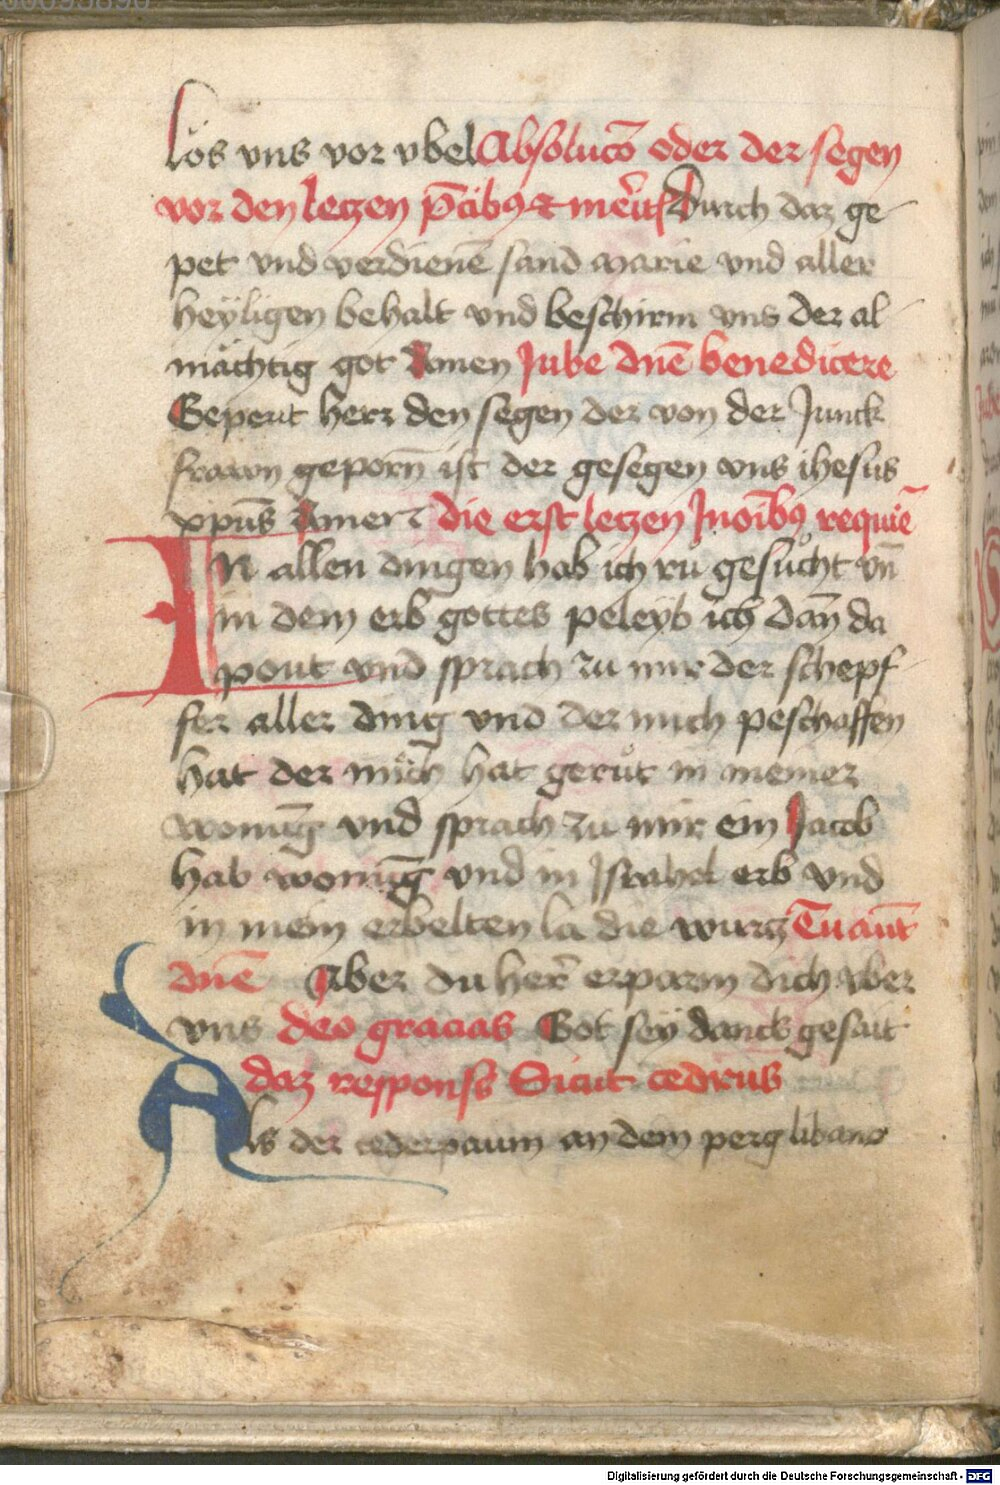 lös vns vor vbel Absolucō oder der segen
vor den leczen p̄cibꝰ et mēitꝭ Durch daz ge
pet vnd verdienē sand marie vnd aller
heÿligen behalt vnd beschirm vns der al
mächtig got Amen Jube dn̄e benedicere
Gepeut herz den segen der von der Junck
frawn geporn̄ ist der gesegen vns ihesus
xp̄us Amen die erst leczen Jn oībꝰ requiē
In allen dingen hab ich rů gesůcht vn̄
in dem erb gottes peleyb ich dan̄ da
pout vnd sprach zu mir der schepf
fer aller ding vnd der mich peschaffen
hat der mich hat gerůt in meiner
wonūg vnd sprach zu mir ein Jacob
hab wonūg vnd in Jsrahel erb vnd
in mein erbelten la die wurcz Tu aut̄
dn̄e Aber du her̄ erparm dich vber
vns deo gracias Got seÿ danck gesait
daz respons Sicut cedrus
Als der cederpaum an dem perg libano
Digitalisierung gefördert durch die Deutsche Forschungsgemeinschaft - DFG